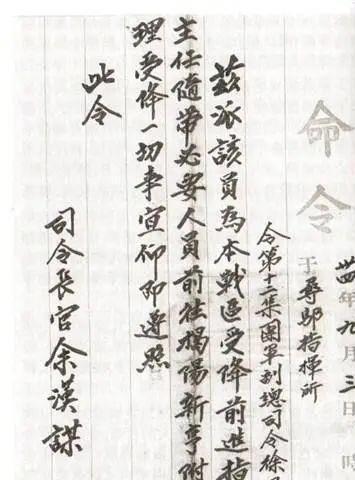 命令
卅四年九月三日
于尋鄔指揮所
令第十二集團軍副總司令徐
茲派該員為本戰區受降前進指
主任隨帶必要人員前往揭陽新亨附
理受降一切事宜仰即遵照
此令
司令長官余漢謀